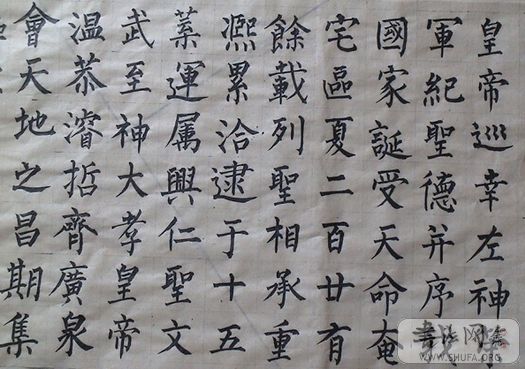 皇帝巡幸左神
軍紀聖德并序
國家誕受天命奄
宅區夏二百廿有
餘載列聖相承重
熙累洽逮于十五
葉運属興仁聖文
武至神大孝皇帝
温恭濬哲齊廣泉
會天地之昌期集
WWW.SHUFA.ORG